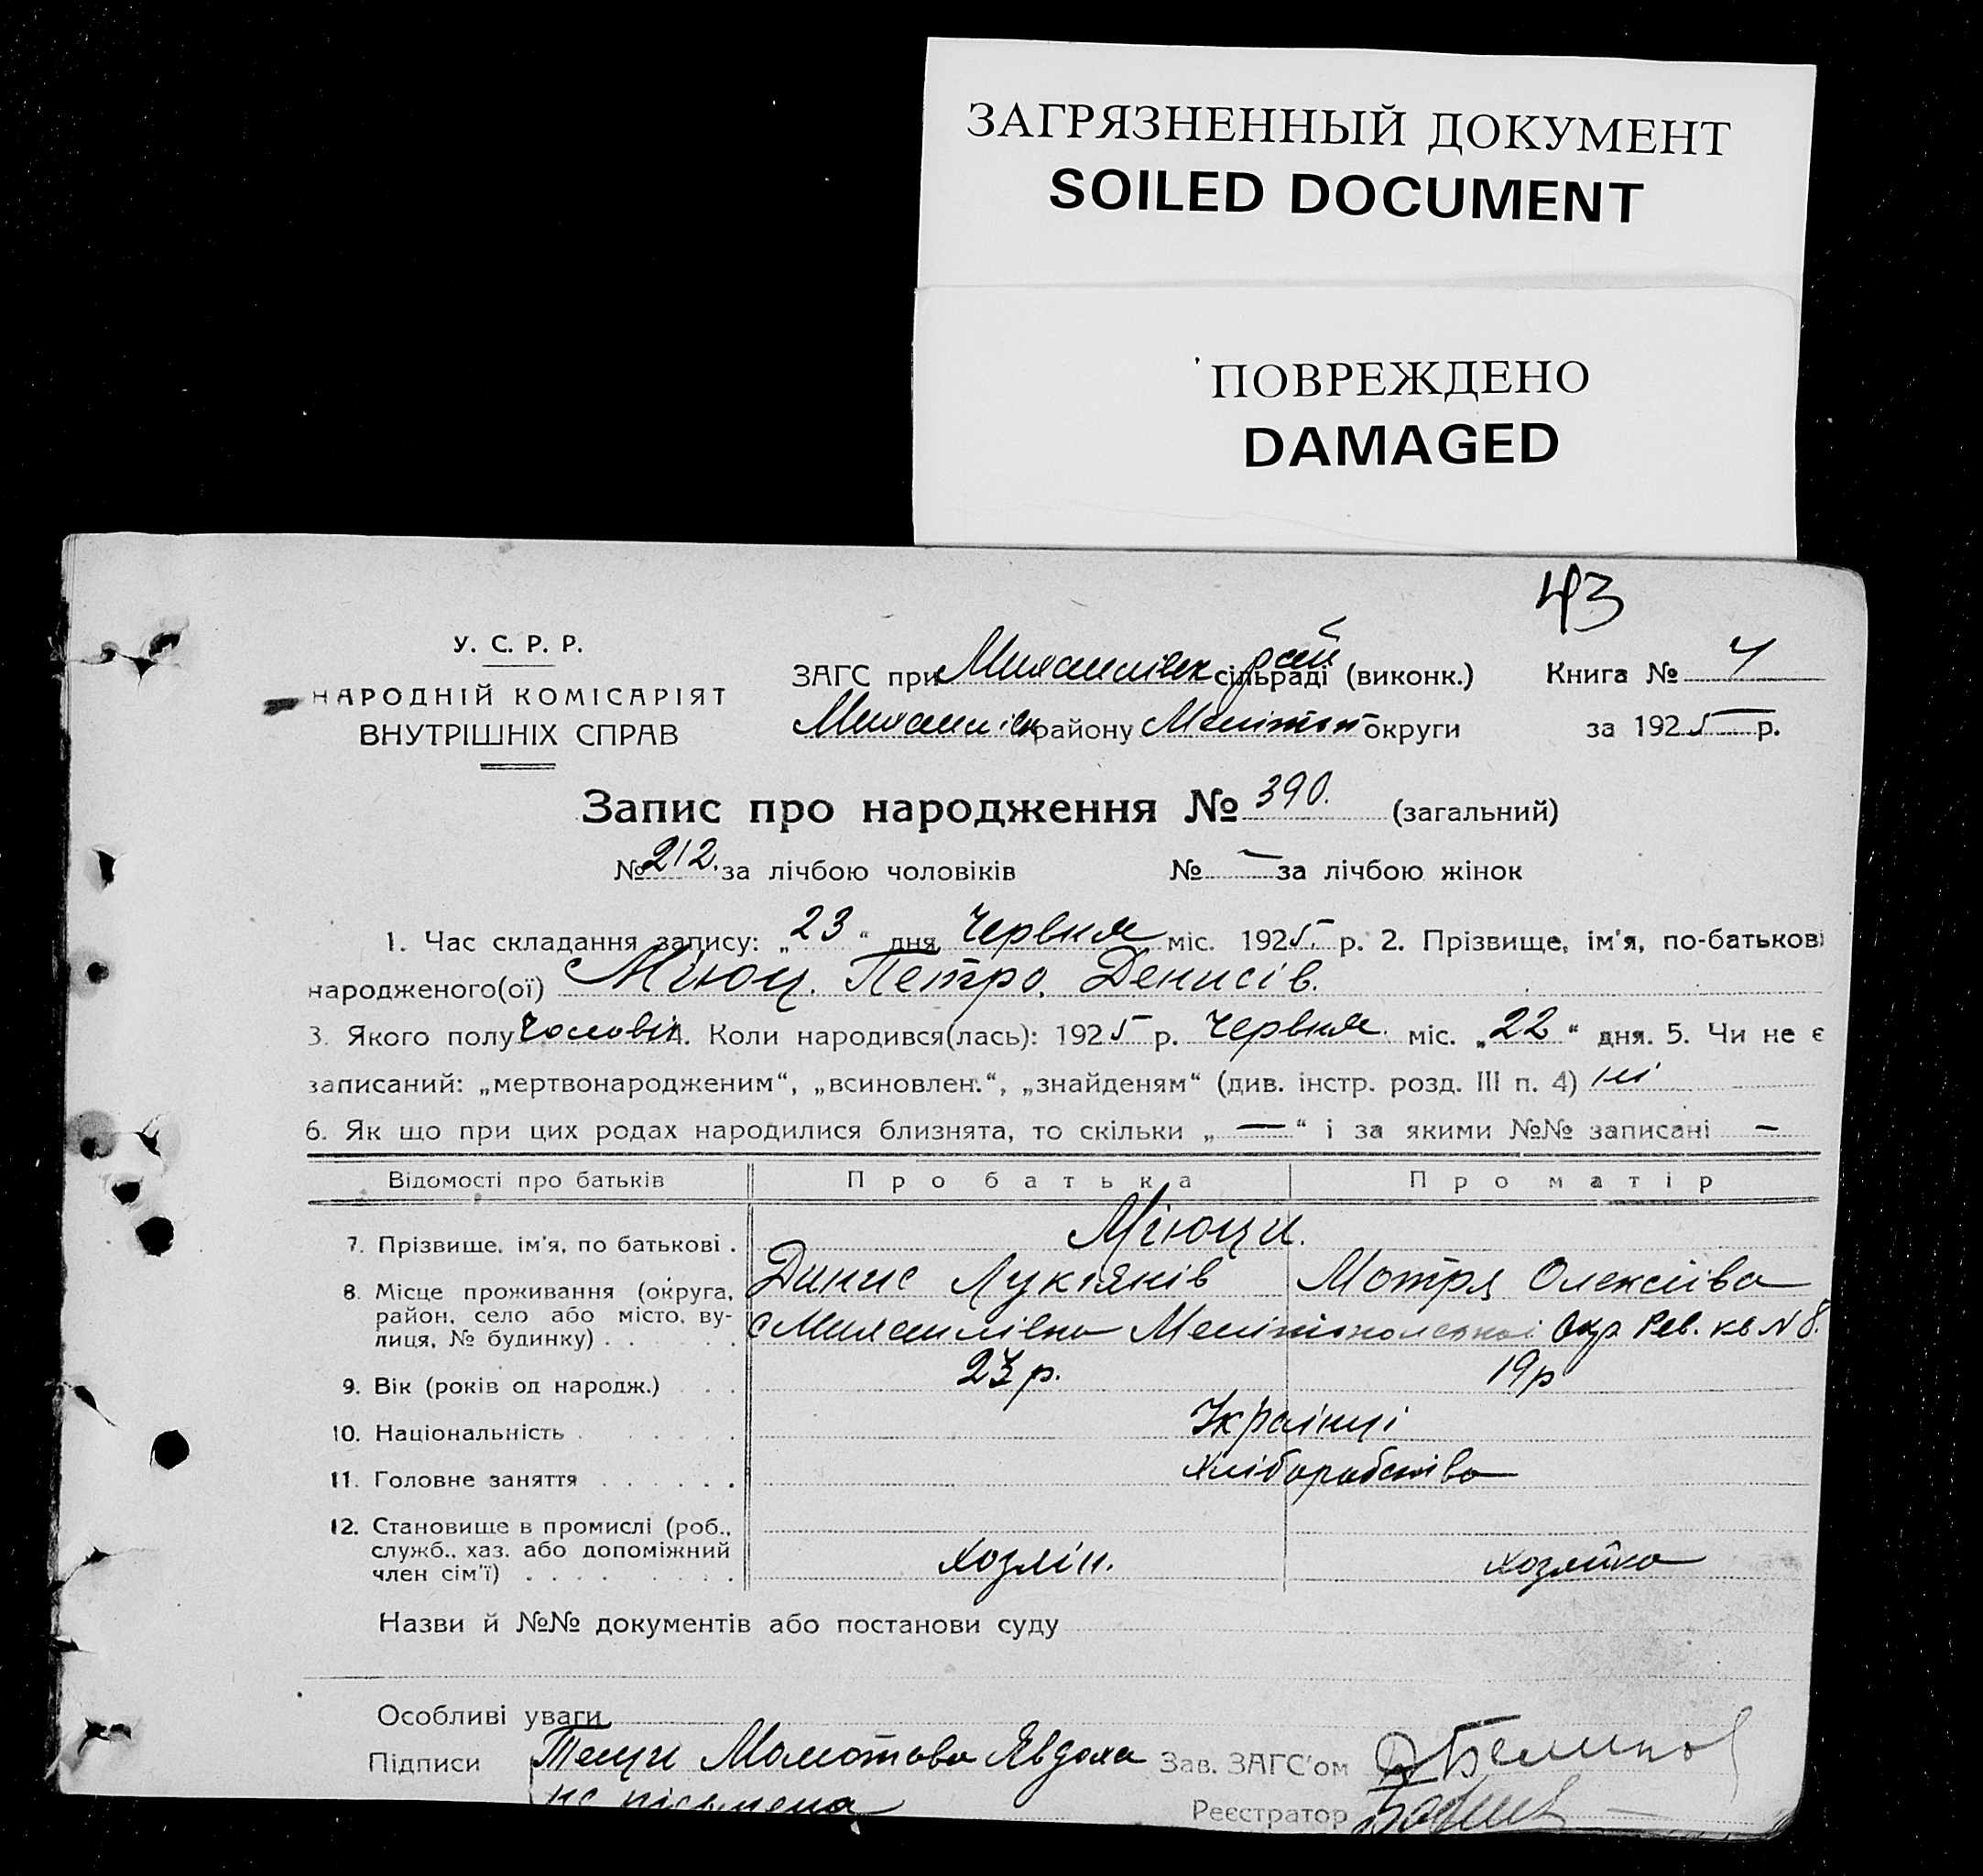 ЗАГРЯЗНЕННЫЙ ДОКУМЕНТ
SOILED DOCUMENT
ПОВРЕЖДЕНО
DAMAGED
43
У. С. Р. Р.
НАРОДНІЙ КОМІСАРІЯТ
ВНУТРІШНІХ СПРАВ
ЗАГС при Михайлівск рай сільраді (виконк.) Книга №
Михайлівск району Мелітоп округи за 1925 р.
Запис про народження № 390. (загальний)
№ 212. за лічбою чоловіків № — за лічбою жінок
1. Час складання запису: „23“ дня Червня міс. 1925 р. 2. Прізвище, ім'я, по-батькові
народженого(ої) Мiюц. Петро. Денисів.
3. Якого полу Чоловік 4. Коли народився(лась): 1925 р. Червня міс. „22“ дня. 5. Чи не є
записаний: „мертвонародженим“, „всиновлен.“, „знайденям“ (див. інстр. розд. III п. 4) ні
6. Як що при цих родах народилися близнята, то скільки „—“ і за якими №№ записані —
Відомості про батьків Про батька Про матір
7. Прізвище, ім'я, по батькові . Міюци.
8. Місце проживання (округа, Динис Лук'янів Мотря Олексіїва
район, село або місто, ву-
лиця, № будинку) . . . с Михайлівка Мелітопольської Окр. Рев. кв N 8.
9. Вік (років од народж.) . . 23 р. 19 р
10. Національність . . . . . Українці
11. Головне заняття . . . . . . Хліборобство
12. Становище в промислі (роб.,
служб., хаз. або допоміжний
член сім'ї) . . . . . . Хозяін. хозяйка
Назви й №№ документів або постанови суду
Особливі уваги
Підписи Тещи Момотова Явдоха Зав. ЗАГС'ом
не письмена Реєстратор